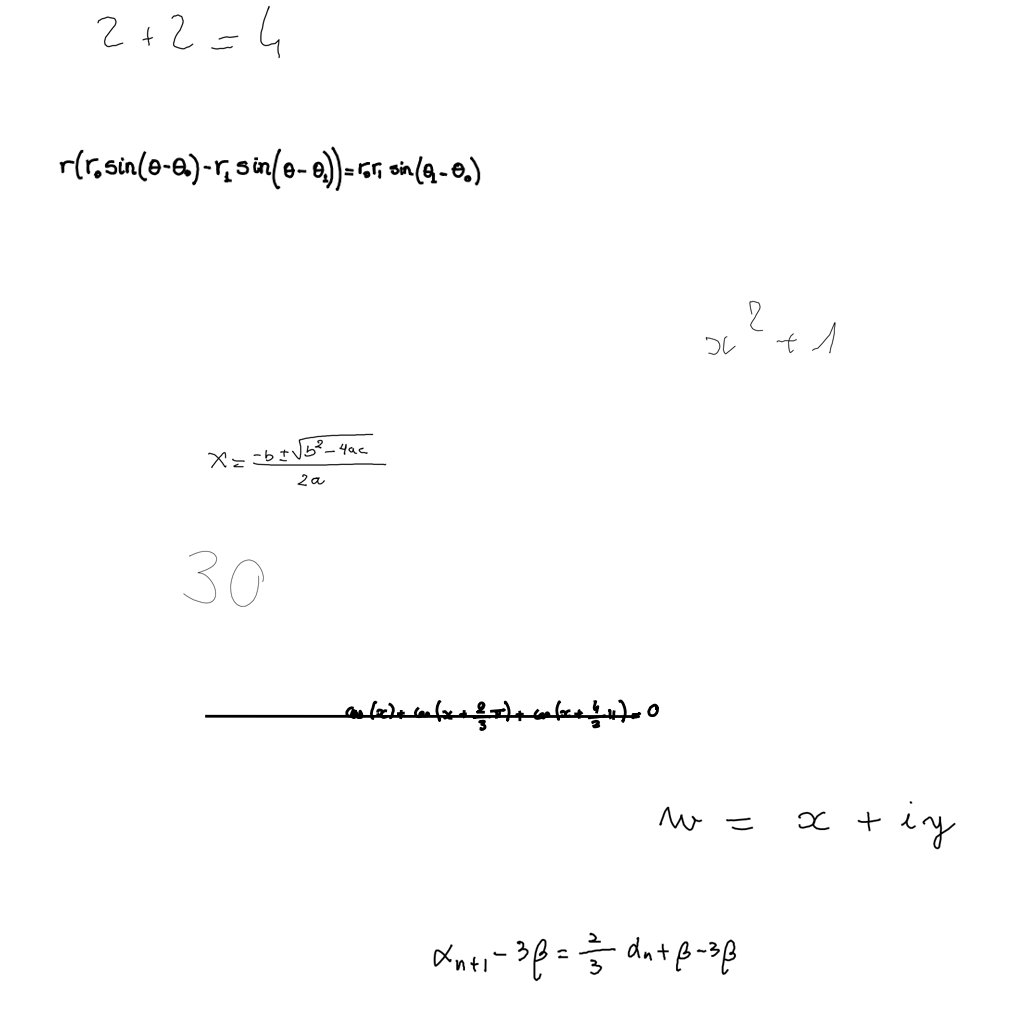 2 + 2 = 4
r(r₀ sin(θ-θ₀) - r₁ sin(θ-θ₁)) = r₀r₁ sin(θ₁-θ₀)
x² + 1
x = (-b ± √(b² - 4ac)) / 2a
30
cos(x) + cos(x + 2/3 π) + cos(x + 4/3 π) = 0
w = x + iy
αₙ₊₁ - 3β = 2/3 αₙ + β - 3β